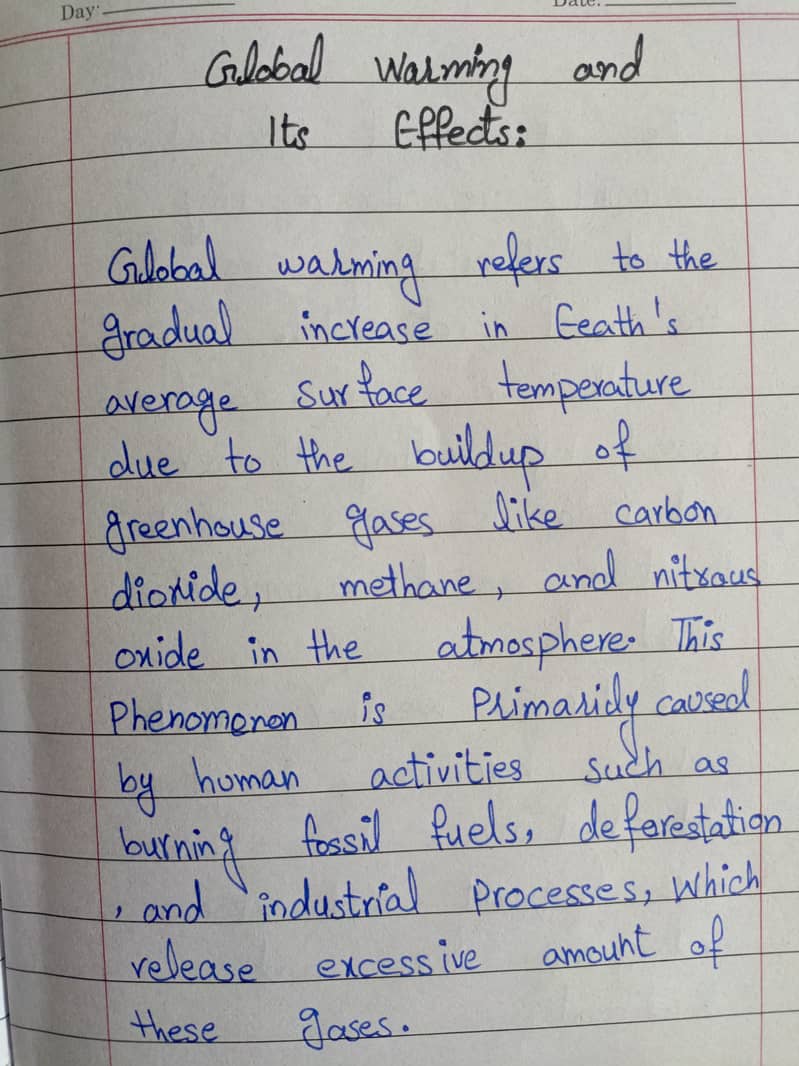 Day:
Date:
Global Warming and
Its Effects:
Global warming refers to the
gradual increase in Eeath's
average surface temperature
due to the buildup of
greenhouse gases like carbon
dioxide, methane, and nitrous
oxide in the atmosphere. This
Phenomenon is Primaridy caused
by human activities such as
burning fossil fuels, deforestation
, and industrial Processes, Which
release excessive amount of
these gases.